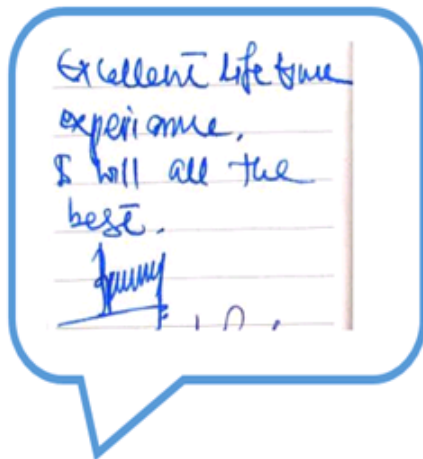 Excellent life time
experiance.
I will all the
best.